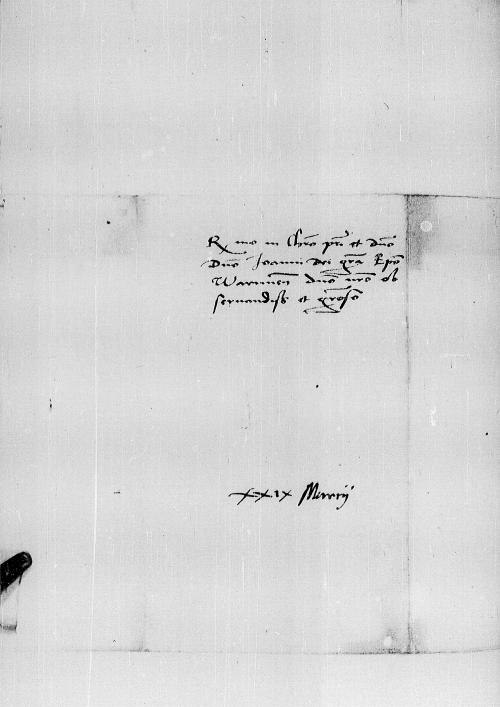 Rmo in Chro pri et dno
Dno Joanni dei gra Epo
Warmien dno nro ob
servandiss et groso
xxix Mercij